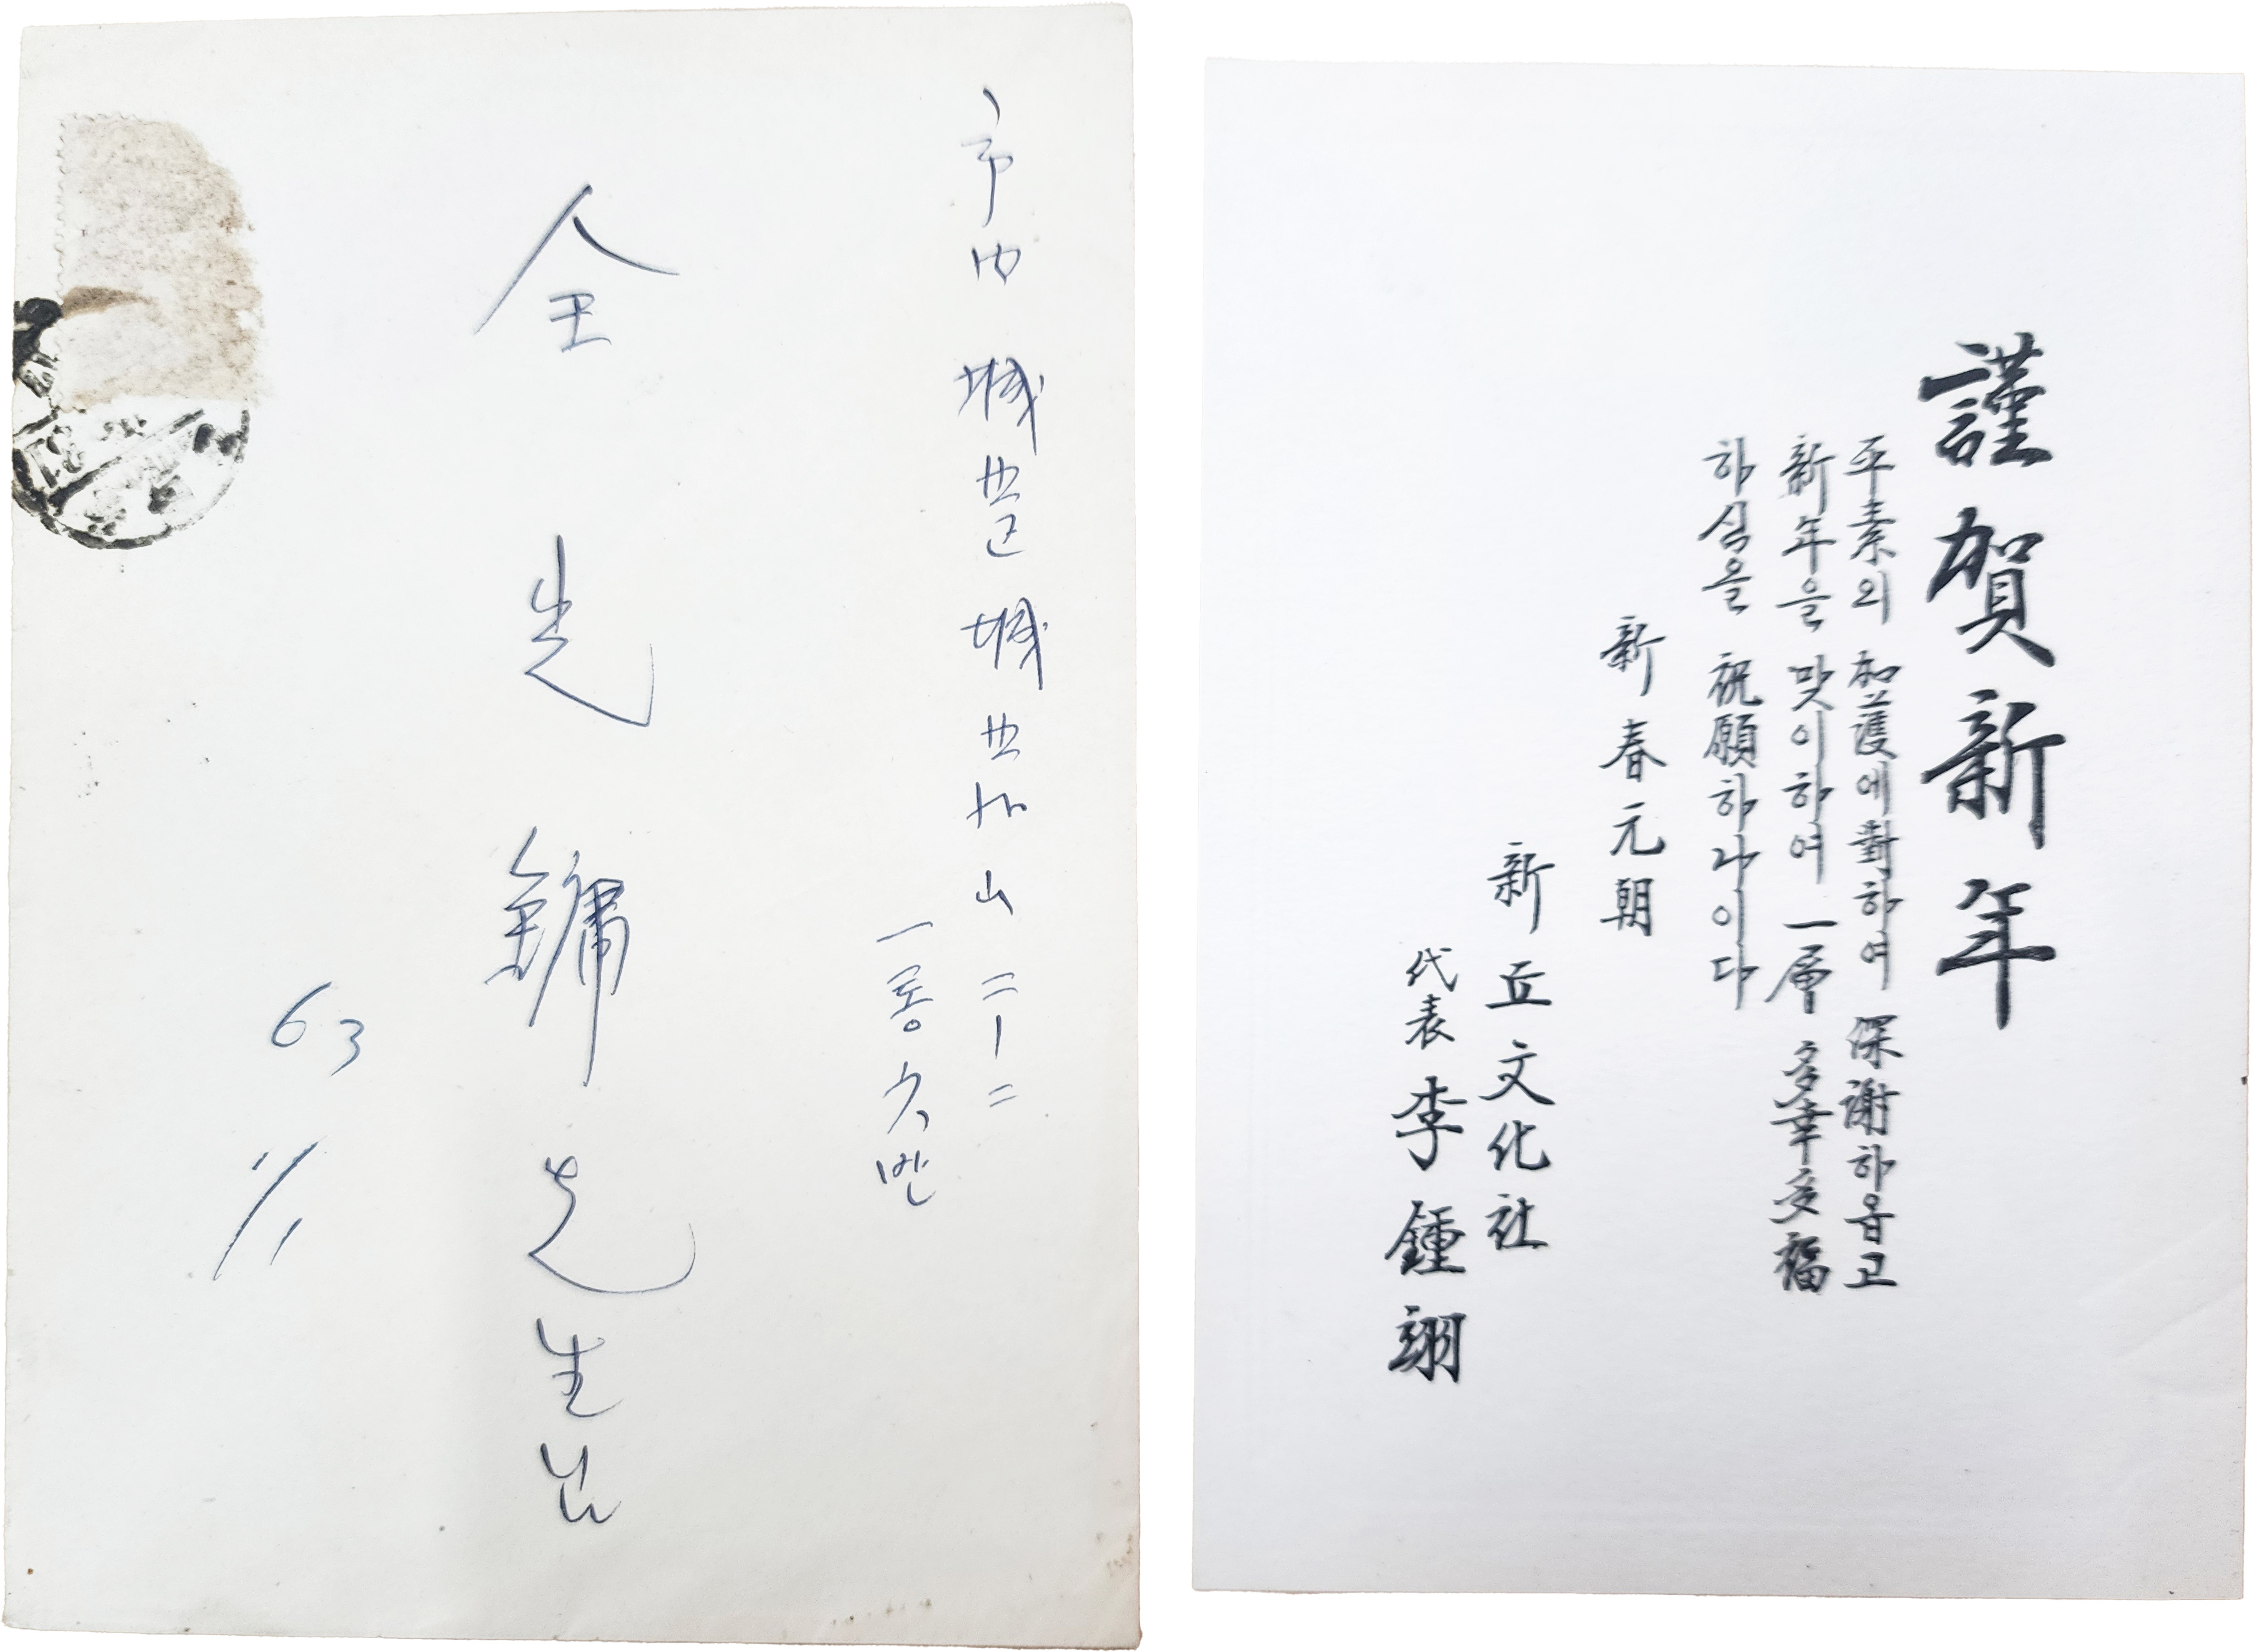 市内 城北区 城北洞 山 二-二
一통 六반
全光鏞先生님
63
1/1
謹賀新年
平素의 加護에 對하여 深謝하옵고
新年을 맞이하여 一層 多幸多福
하심을 祝願하나이다
新春元朝
新丘文化社
代表 李鍾翊